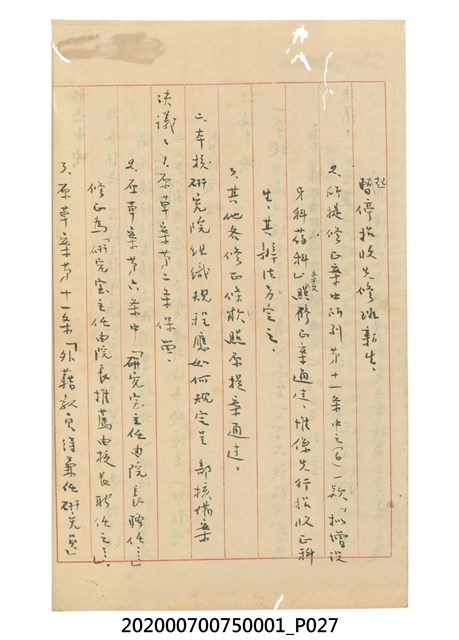 起暫停招收先修班新生。
2.所提修正案中所列第十一條中之(6)一款「擬增設
牙科藥科」照修正案通過,惟係先行招收正科
生,其辦法另定之。
3.其他各修正條款照原提案通過。
二、本校研究院組織規程應如何規定呈 部核備案
決議:1.原草案第二條保留。
2.原草案第六條中「研究室主任由院長聘任…」
修正為「研究室主任由院長推薦由校長聘任之…」。
3.原草案第十一條「外籍教員得兼任研究員」
202000700750001_P027